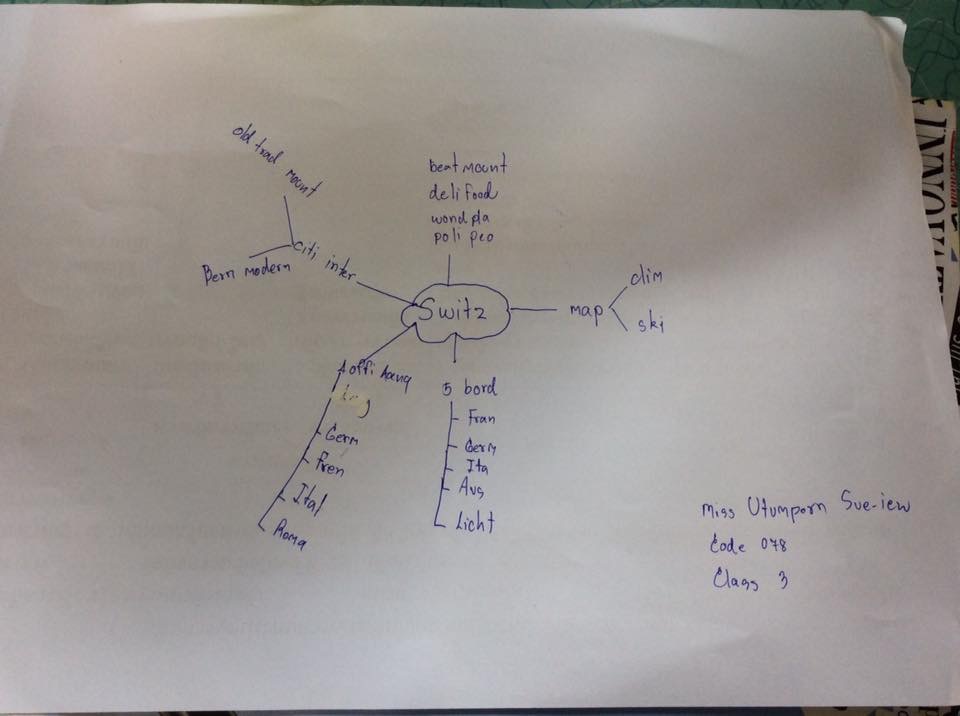 old trad mount
Bern modern
citi inter
beat mount
deli food
wond pla
poli peo
Switz
map
clim
ski
4 offi
Germ
Fren
Ital
Roma
5 bord
Fran
Germ
Ita
Aus
Licht
Miss Utumporn Sue-iew
Code 078
Class 3